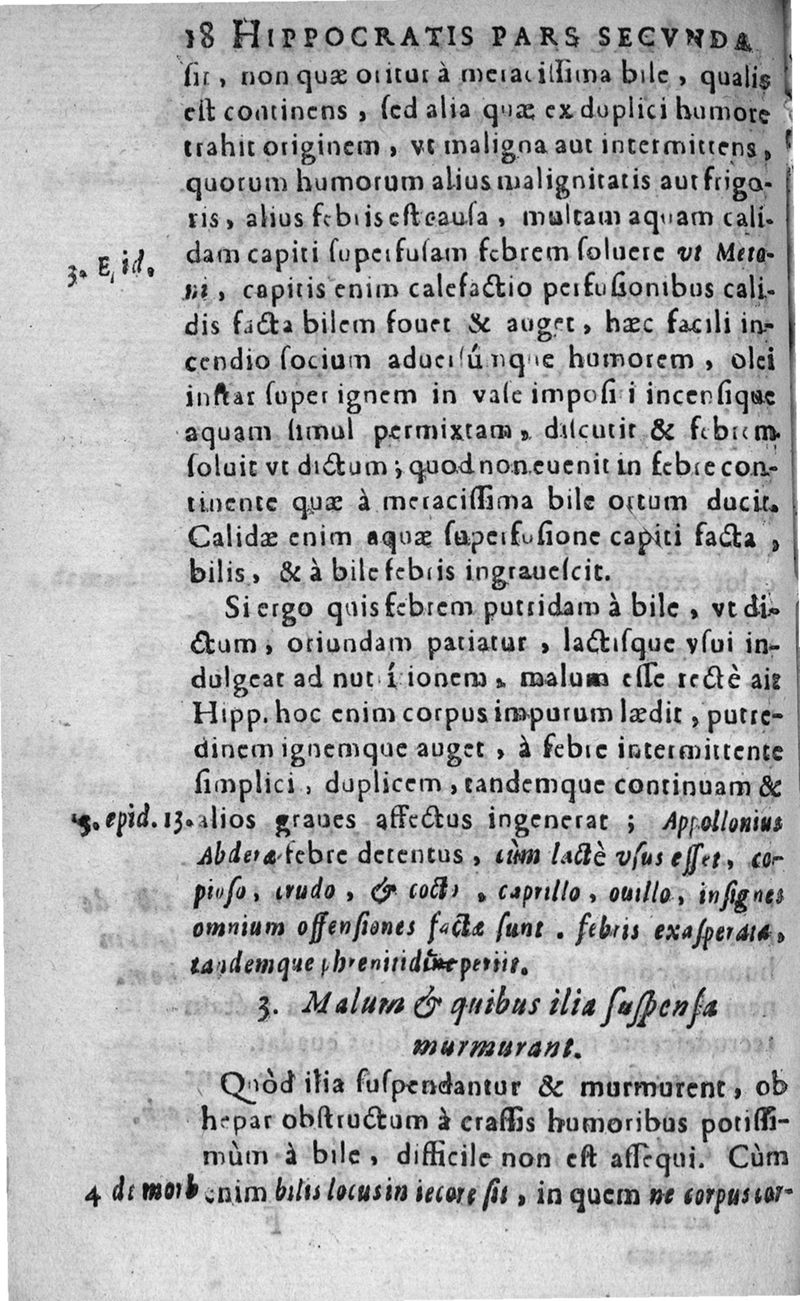 18 HIPPOCRATIS PARS SECVNDA
sit, non quæ oritur à meracissima bile, qualis
est continens, sed alia quæ ex duplici humore
trahit originem, vt maligna aut intermittens,
quorum humorum alius malignitatis aut frigo-
ris, alius febris est causa, multam aquam cali-
dam capiti superfusam febrem soluere vt Meto-
3. Epid.
ni, capitis enim calefactio perfusionibus cali-
dis facta bilem fouet & auget, hæc facili in-
cendio socium adurisúnque humorem, olei
instar super ignem in vase imposi i incensique
aquam simul permixtam, discutit & febrem
soluit vt dictum; quod non euenit in febre con-
tinente quæ à meracissima bile ortum ducit.
Calidæ enim aquæ superfusione capiti facta,
bilis, & à bile febris ingrauescit.
Si ergo quis febrem putridam à bile, vt di-
ctum, oriundam patiatur, lactisque vsui in-
dulgeat ad nut í ionem, malum esse rectè ait
Hipp. hoc enim corpus impurum lædit, putre-
dinem ignemque auget, à febre intermittente
simplici, duplicem, tandemque continuam &
3. epid. 13. alios graues affectus ingenerat; Appollonius
Abderæ febre detentus, cùm lactè vsus esset, co-
pioso, crudo, & cocto, caprillo, ouillo, insignes
omnium offensiones factæ sunt. febris exasperata,
tandemque phrenitide periit.
3. Malum & quibus ilia suspensa
murmurant.
Quòd ilia suspendantur & murmurent, ob
hepar obstructum à crassis humoribus potissi-
mùm à bile, difficile non est assequi. Cùm
4 de morb enim bilis locus in iecore sit, in quem ne corpus cor-